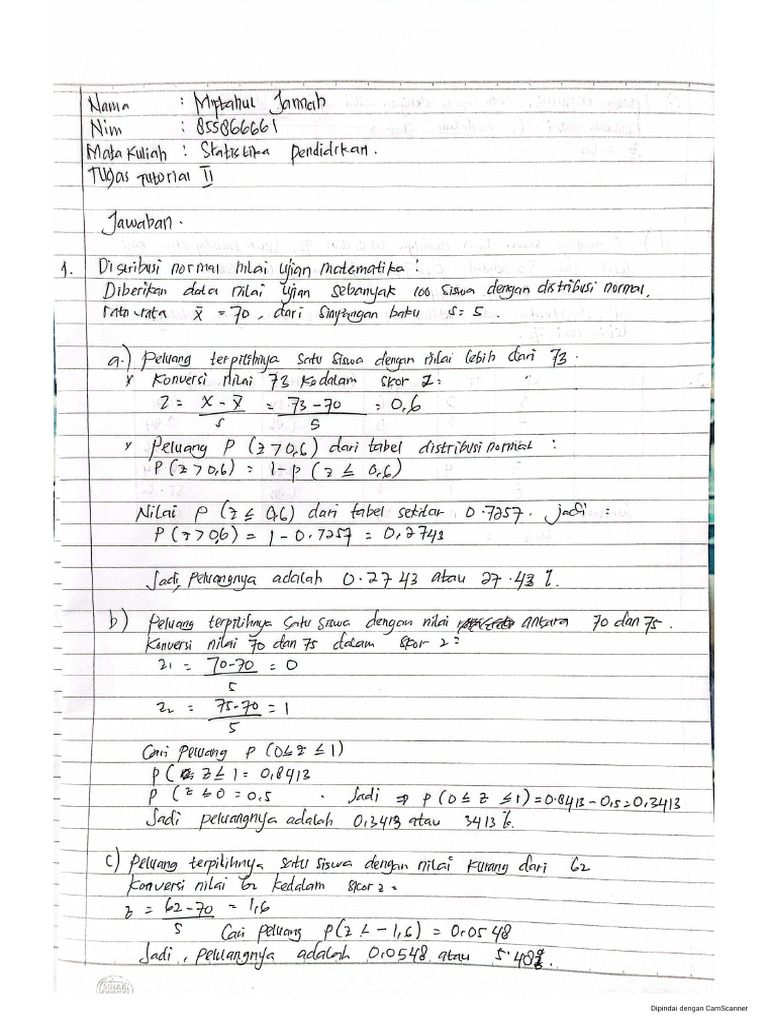 Nama : Miptahul Jannah
Nim : 855866661
Mata Kuliah : Statistika Pendidikan.
TUgas Tutorial II
Jawaban.
1. Distribusi normal nilai Ujian matematika :
Diberikan data nilai Ujian sebanyak 100 siswa dengan distribusi normal.
rata-rata x̄ = 70, dari simpangan baku s = 5.
a.) Peluang terpilihnya satu siswa dengan nilai lebih dari 73.
× Konversi nilai 73 kedalam skor Z :
Z = X - x̄ = 73 - 70 = 0,6
s 5
× Peluang P (z > 0,6) dari tabel distribusi normal :
P (z > 0,6) = 1 - p (z ≤ 0,6)
Nilai P (z ≤ 0,6) dari tabel sekitar 0.7257. jadi =
P (z > 0,6) = 1 - 0.7257 = 0,2743
Jadi, Peluangnya adalah 0.2743 atau 27.43 %.
b) Peluang terpilihnya satu siswa dengan nilai antara 70 dan 75.
Konversi nilai 70 dan 75 dalam skor z =
z₁ = 70-70 = 0
5
z₂ = 75-70 = 1
5
Cari Peluang P (0 ≤ z ≤ 1)
P ( z ≤ 1 = 0,8413
P (z ≤ 0 = 0.5 . Jadi ⇒ P (0 ≤ z ≤ 1) = 0.8413 - 0,5 = 0,3413
Jadi peluangnya adalah 0,3413 atau 3413 %.
c) Peluang terpilihnya satu siswa dengan nilai kurang dari 62
Konversi nilai 62 kedalam skor z =
z = 62 - 70 = 1,6
5
Cari Peluang P(z ≤ - 1,6) = 0,0548
Jadi, peluangnya adalah 0,0548 atau 5.48%.
SINAR
Dipindai dengan CamScanner